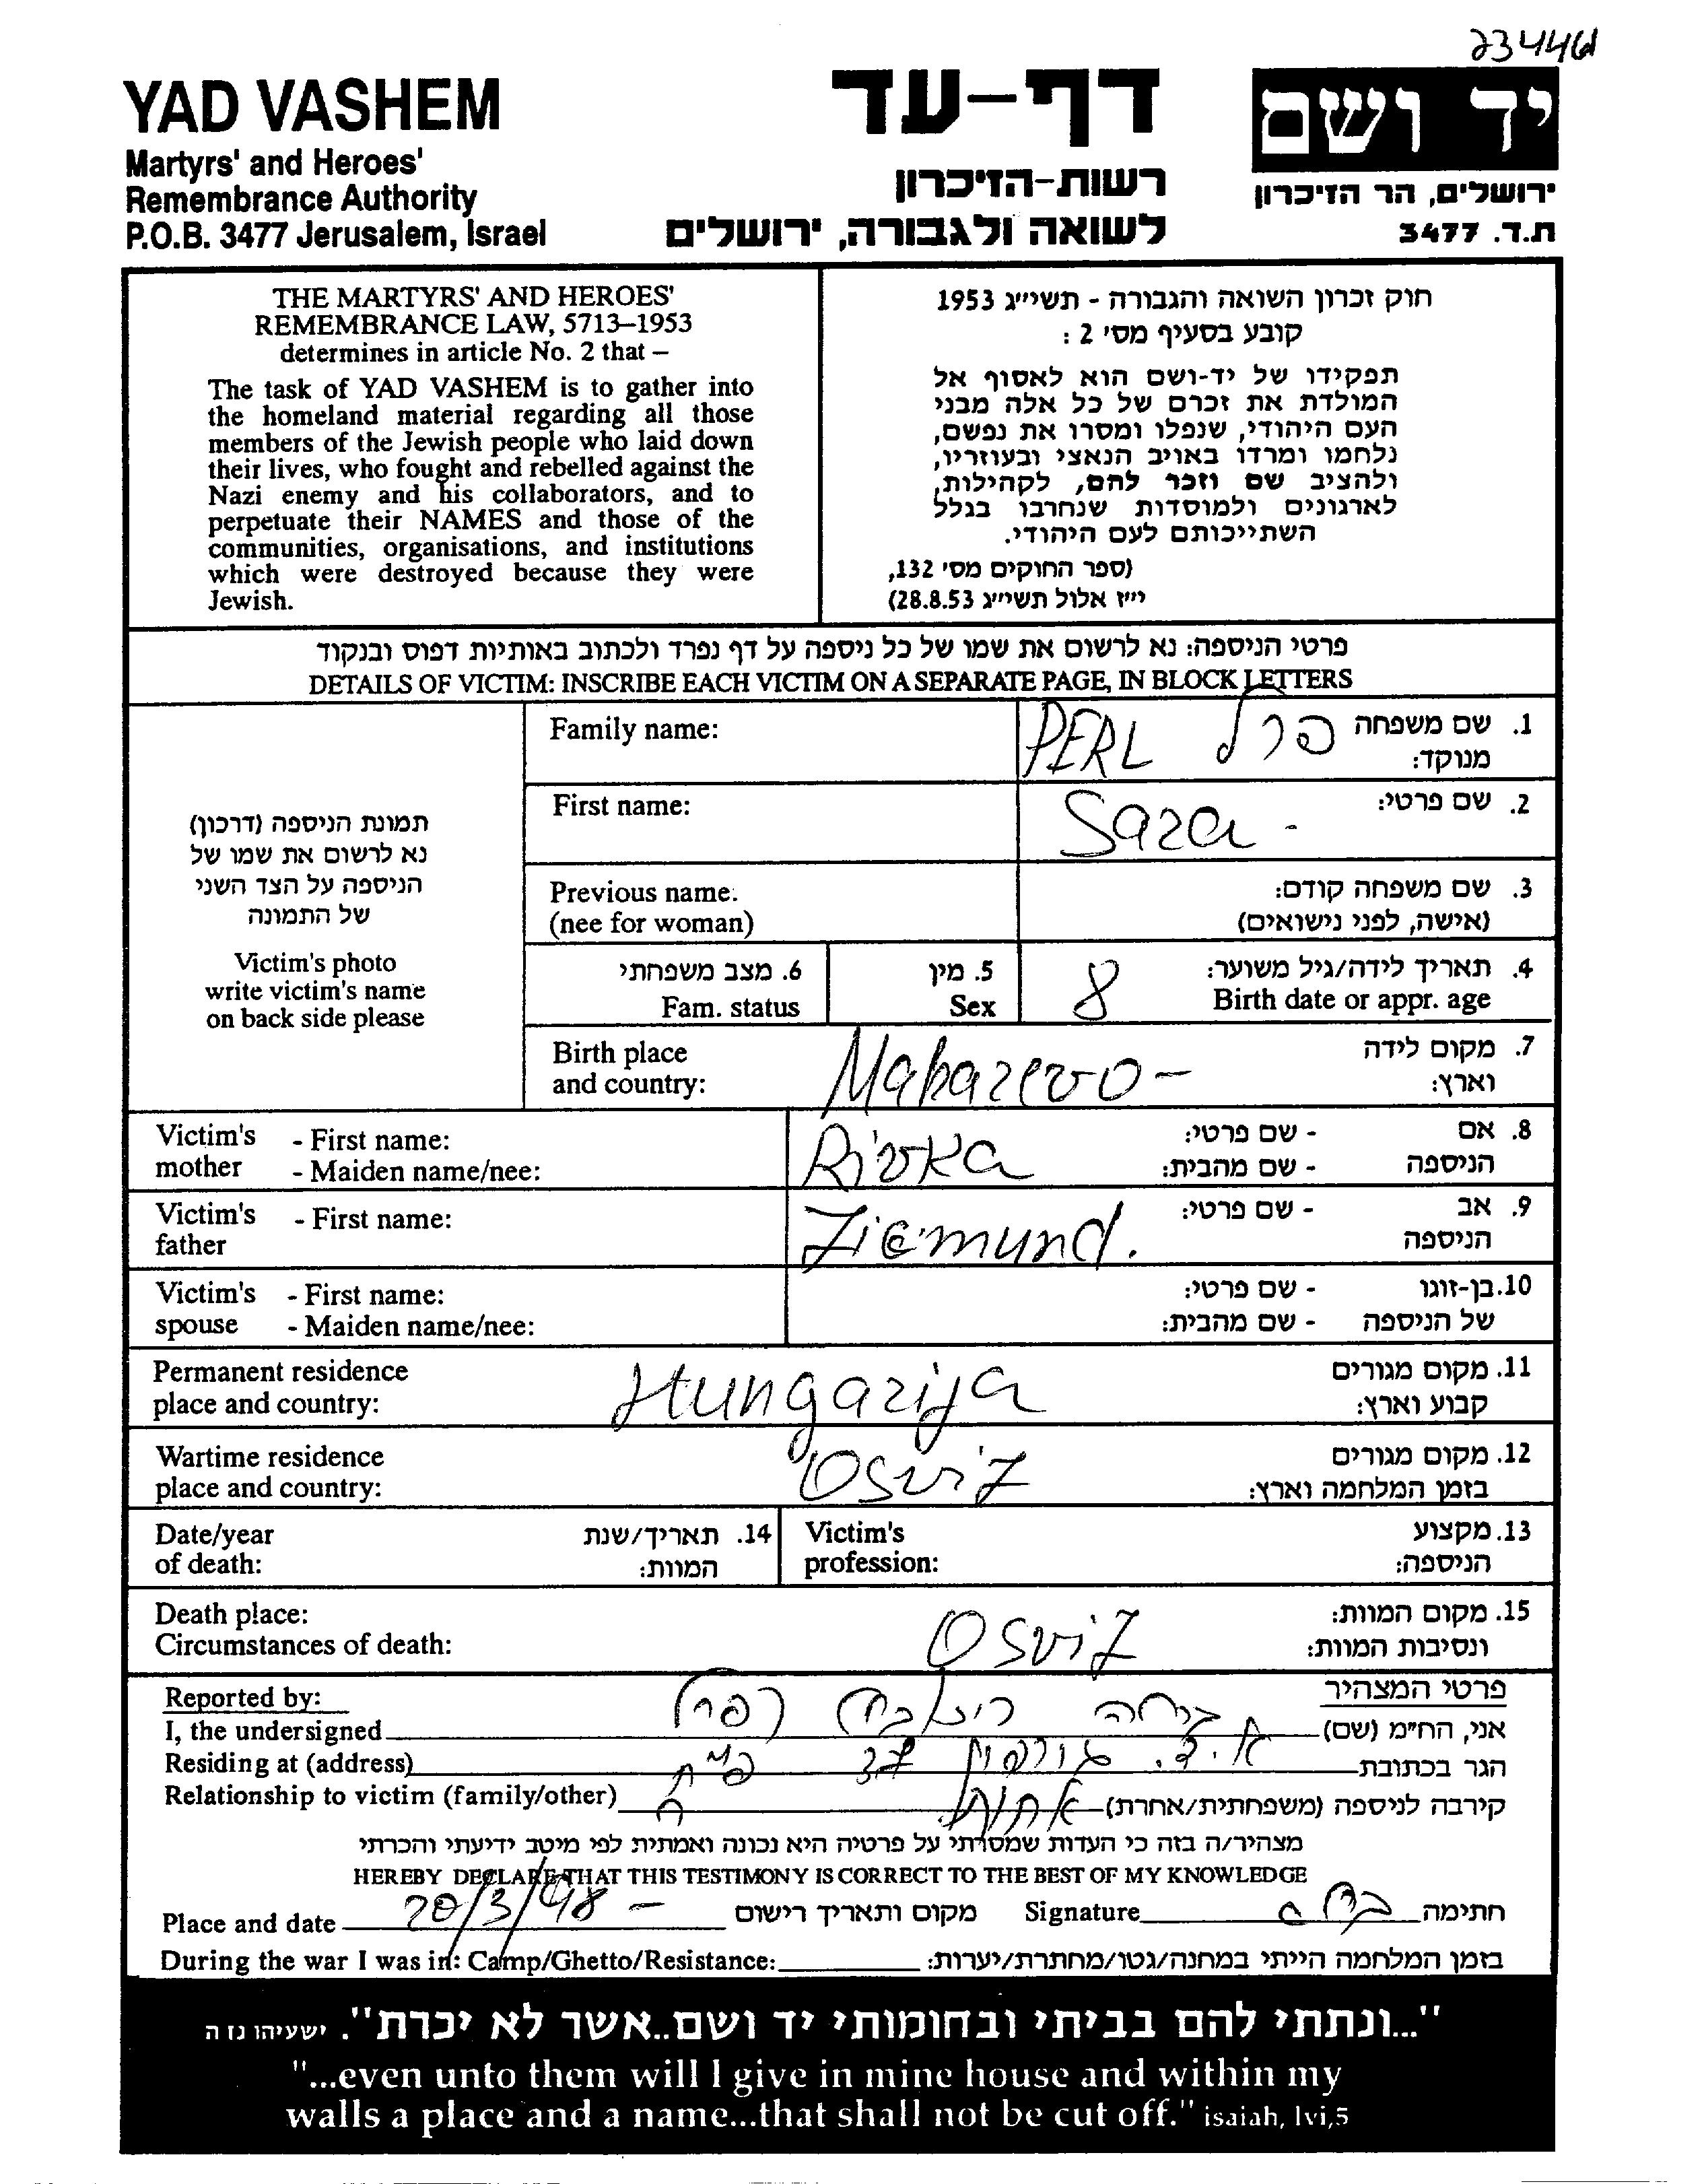 234461
YAD VASHEM
Martyrs' and Heroes'
Remembrance Authority
P.O.B. 3477 Jerusalem, Israel
דף-עד
רשות-הזיכרון
לשואה ולגבורה, ירושלים
יד ושם
ירושלים, הר הזיכרון
ת.ד. 3477
THE MARTYRS' AND HEROES'
REMEMBRANCE LAW, 5713–1953
determines in article No. 2 that –
The task of YAD VASHEM is to gather into
the homeland material regarding all those
members of the Jewish people who laid down
their lives, who fought and rebelled against the
Nazi enemy and his collaborators, and to
perpetuate their NAMES and those of the
communities, organisations, and institutions
which were destroyed because they were
Jewish.
חוק זכרון השואה והגבורה - תשי״ג 1953
קובע בסעיף מס׳ 2 :
תפקידו של יד-ושם הוא לאסוף אל
המולדת את זכרם של כל אלה מבני
העם היהודי, שנפלו ומסרו את נפשם,
נלחמו ומרדו באויב הנאצי ובעוזריו,
ולהציב שם וזכר להם, לקהילות,
לארגונים ולמוסדות שנחרבו בגלל
השתייכותם לעם היהודי.
(ספר החוקים מס׳ 132,
י״ז אלול תשי״ג 28.8.53)
פרטי הניספה: נא לרשום את שמו של כל ניספה על דף נפרד ולכתוב באותיות דפוס ובנקוד
DETAILS OF VICTIM: INSCRIBE EACH VICTIM ON A SEPARATE PAGE, IN BLOCK LETTERS
תמונת הניספה (דרכון)
נא לרשום את שמו של
הניספה על הצד השני
של התמונה
Victim's photo
write victim's name
on back side please
Family name: PERL פרל 1. שם משפחה
מנוקד:
First name: Sara - 2. שם פרטי:
Previous name: 3. שם משפחה קודם:
(nee for woman) (אישה, לפני נישואים)
6. מצב משפחתי 5. מין 4. תאריך לידה/גיל משוער:
Fam. status Sex 8 Birth date or appr. age
Birth place Makarevo - 7. מקום לידה
and country: וארץ:
Victim's - First name: Rivka - שם פרטי: 8. אם
mother - Maiden name/nee: - שם מהבית: הניספה
Victim's - First name: Zigmund. - שם פרטי: 9. אב
father הניספה
Victim's - First name: - שם פרטי: 10. בן-זוגו
spouse - Maiden name/nee: - שם מהבית: של הניספה
Permanent residence Hungarija 11. מקום מגורים
place and country: קבוע וארץ:
Wartime residence Osviz 12. מקום מגורים
place and country: בזמן המלחמה וארץ:
Date/year 14. תאריך/שנת Victim's 13. מקצוע
of death: המוות: profession: הניספה:
Death place: Osviz 15. מקום המוות:
Circumstances of death: ונסיבות המוות:
Reported by: פרטי המצהיר
I, the undersigned אני, הח״מ (שם)
Residing at (address) 37 הגר בכתובת
Relationship to victim (family/other) אחות קירבה לניספה (משפחתית/אחרת)
מצהיר/ה בזה כי העדות שמסרתי על פרטיה היא נכונה ואמתית לפי מיטב ידיעתי והכרתי
HEREBY DECLARE THAT THIS TESTIMONY IS CORRECT TO THE BEST OF MY KNOWLEDGE
Place and date 20/3/98 - מקום ותאריך רישום Signature חתימה
During the war I was in: Camp/Ghetto/Resistance: בזמן המלחמה הייתי במחנה/גטו/מחתרת/יערות:
"...ונתתי להם בביתי ובחומותי יד ושם..אשר לא יכרת". ישעיהו נו ה
"...even unto them will I give in mine house and within my
walls a place and a name...that shall not be cut off." isaiah, lvi,5